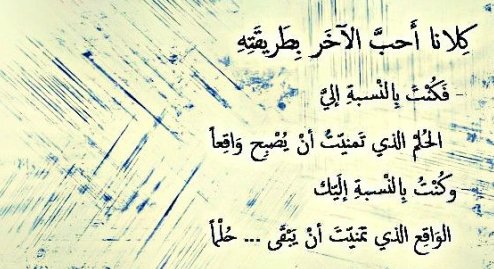 كِلانا أَحبَّ الآخَر بِطَريقَتِهِ
- فَكُنْتَ بِالنْسبةِ إليَّ
الحُلمْ الذي تَمنيّتُ أنْ يُصْبِح وَاقِعاً
- وكُنْتُ بِالنْسبَةِ إلَيّك
الوَاقِع الذي تمَنيّتَ أنْ يَبْقَى ... حُلْماً